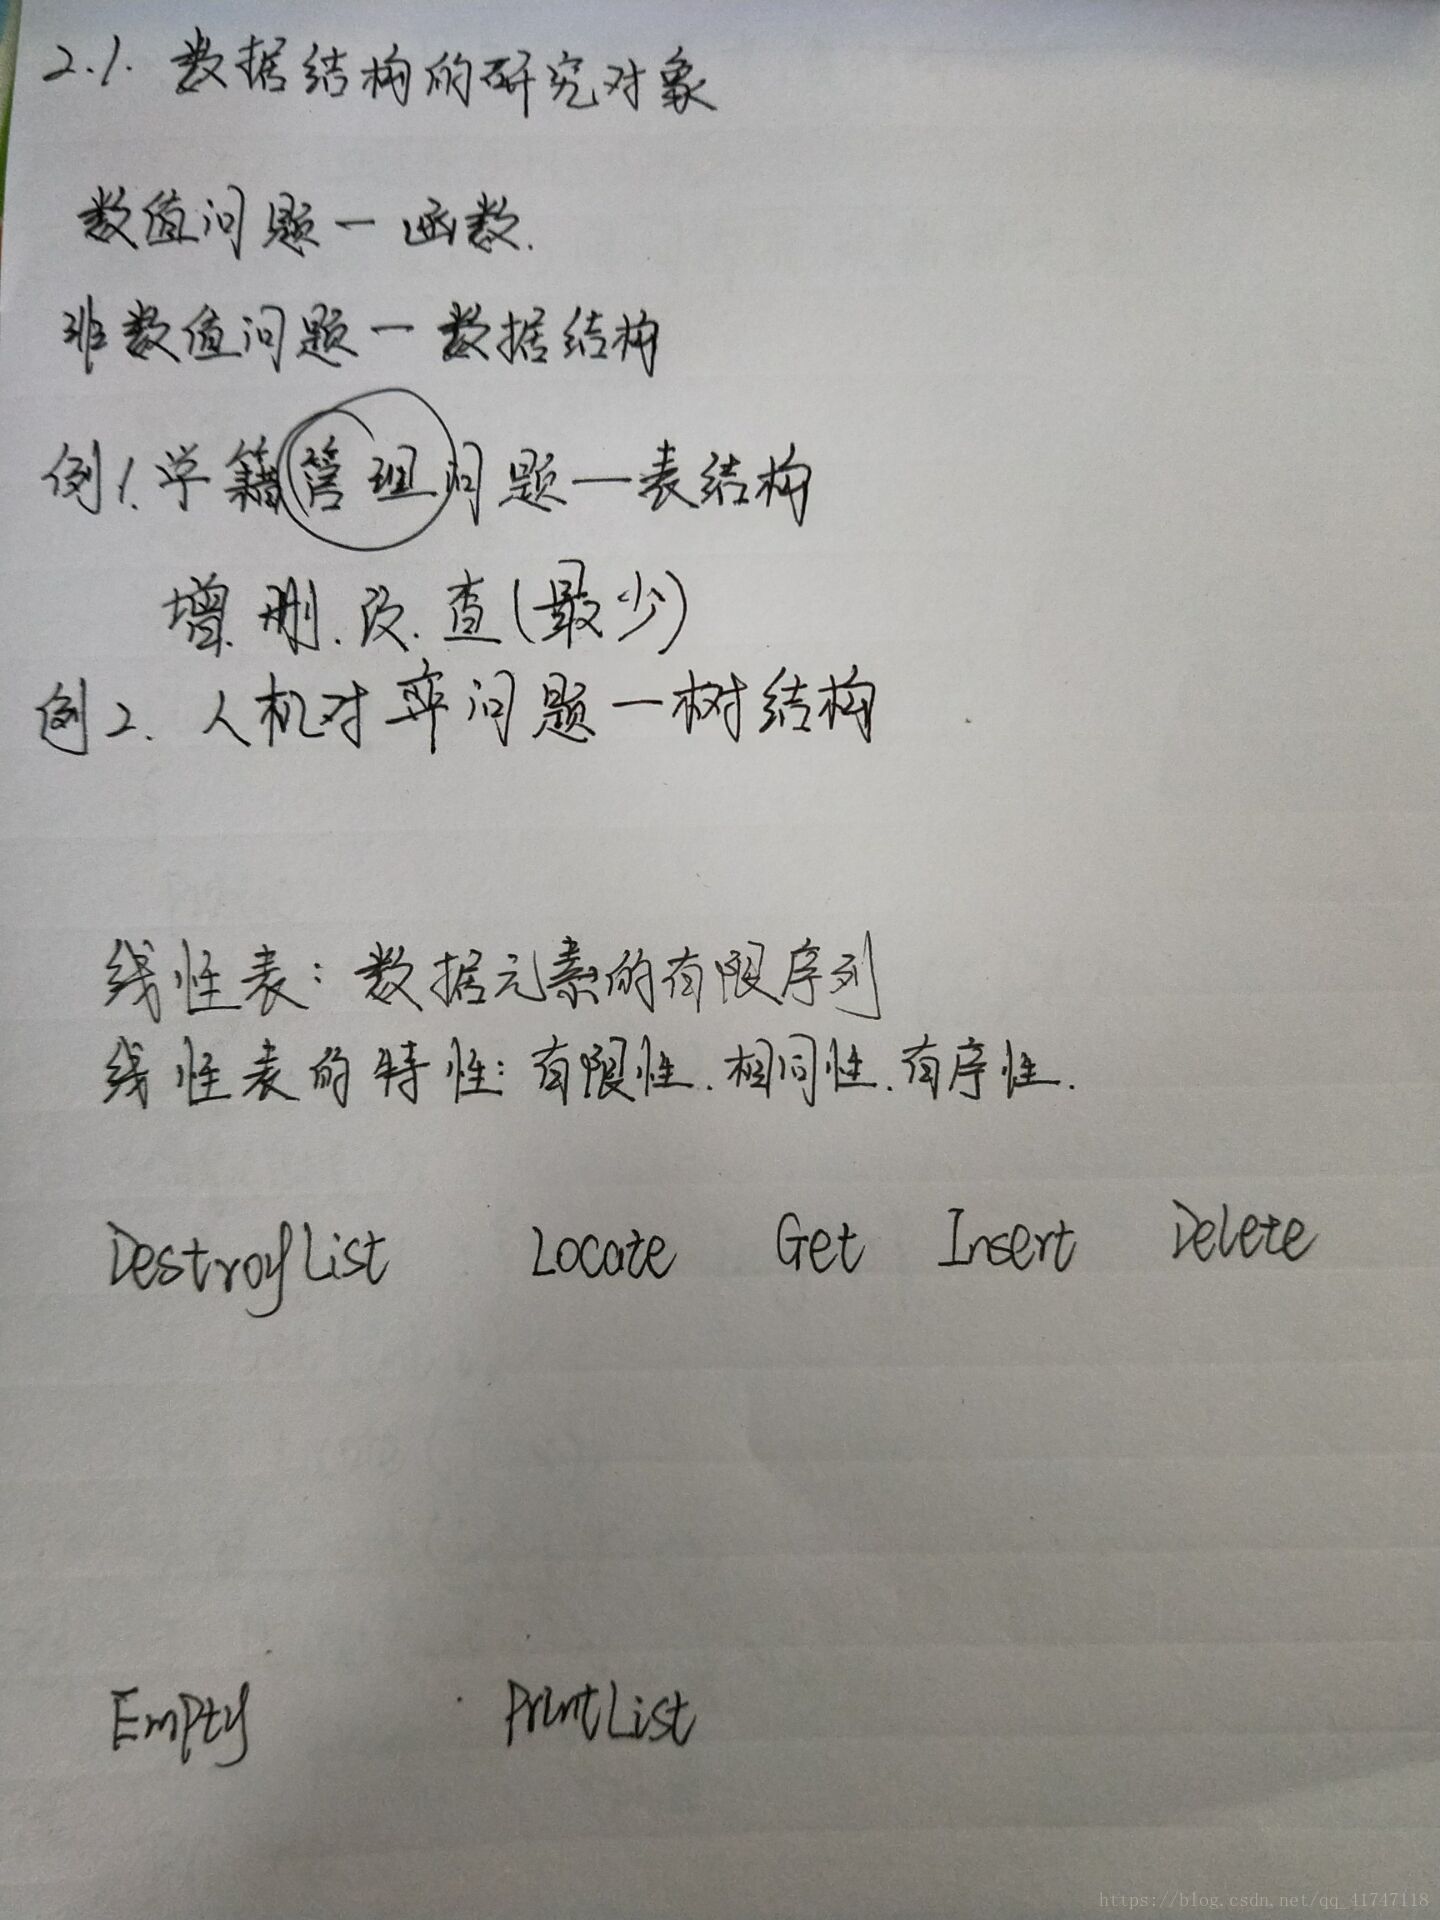 2.1. 数据结构的研究对象
数值问题一函数.
非数值问题一数据结构
例1.学籍管理问题一表结构
增.删.改.查(最少)
例2.人机对弈问题一树结构
线性表:数据元素的有限序列
线性表的特性:有限性.相同性.有序性.
DestroyList Locate Get Insert Delete
Empty PrintList
https://blog.csdn.net/qq_41747118